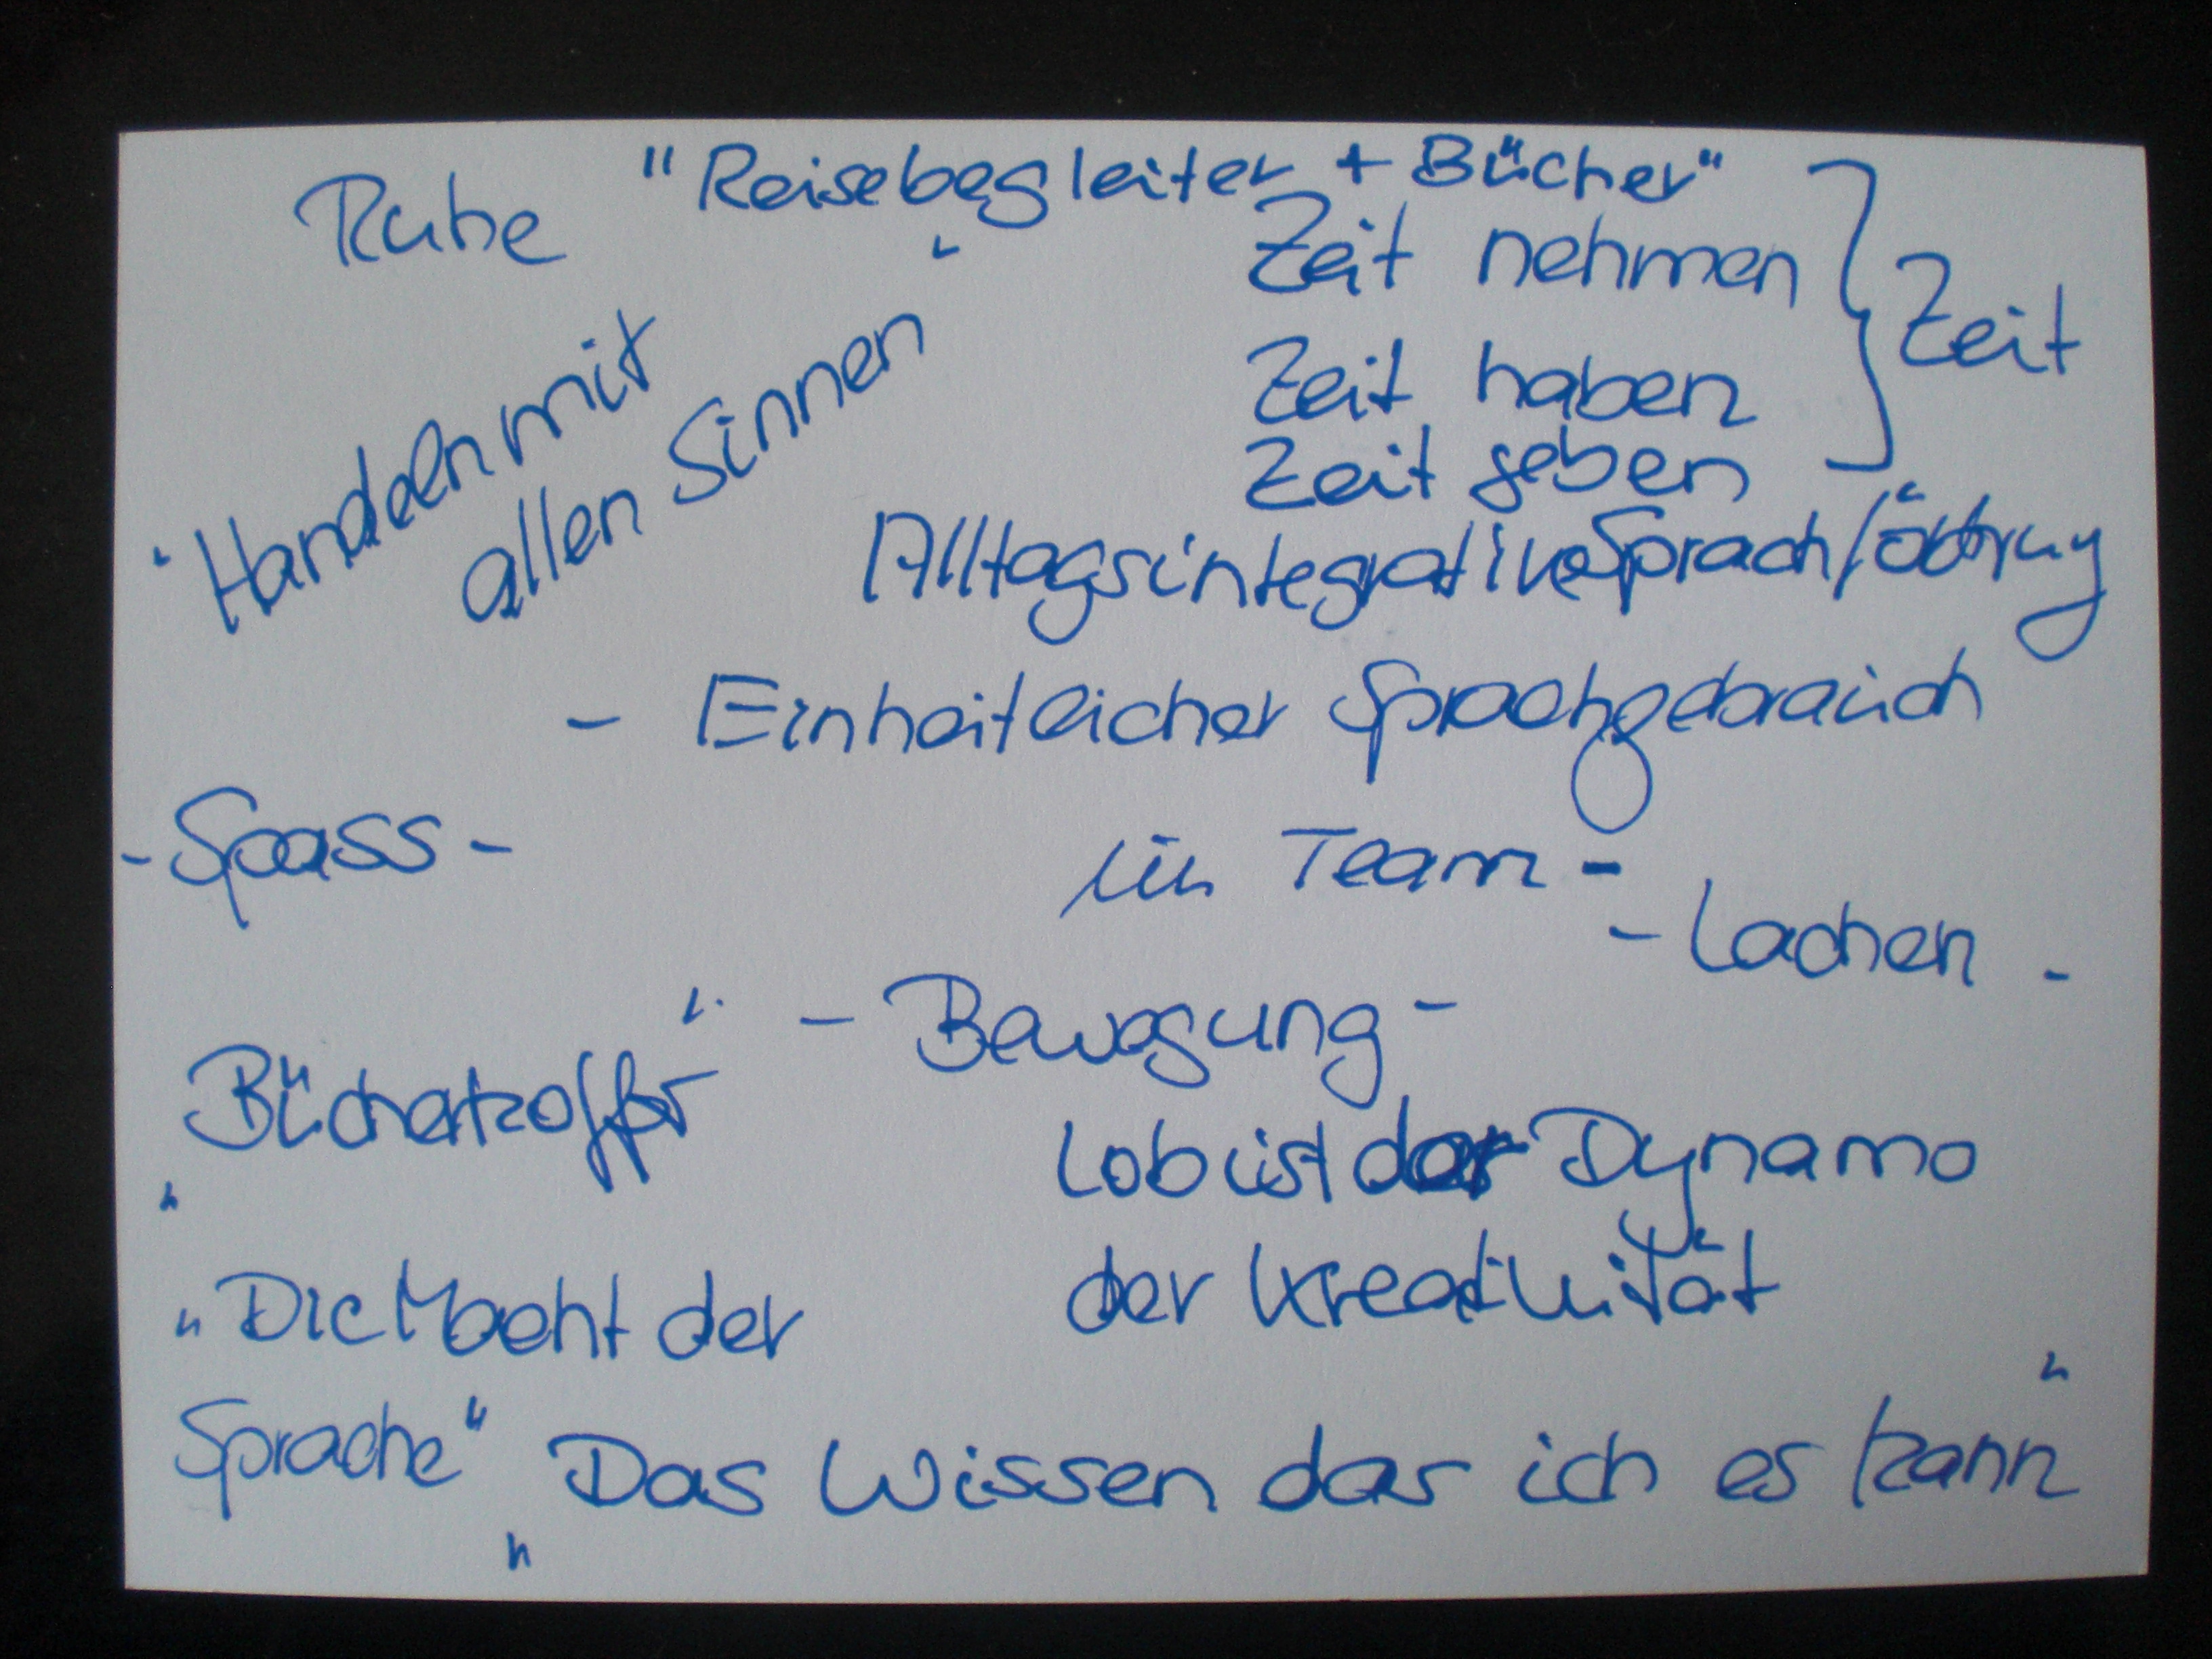 Ruhe "Reisebegleiter + Bücher"
Zeit nehmen
Zeit haben
Zeit geben
} Zeit
"Handeln mit
allen Sinnen"
Alltagsintegrative Sprachförderung
- Einheitlicher Sprachgebrauch
im Team -
- Spass -
- Lachen -
- Bewegung -
"Bücherkoffer"
Lob ist der Dynamo
der Kreativität
"Die Macht der
Sprache"
"Das Wissen das ich es kann"